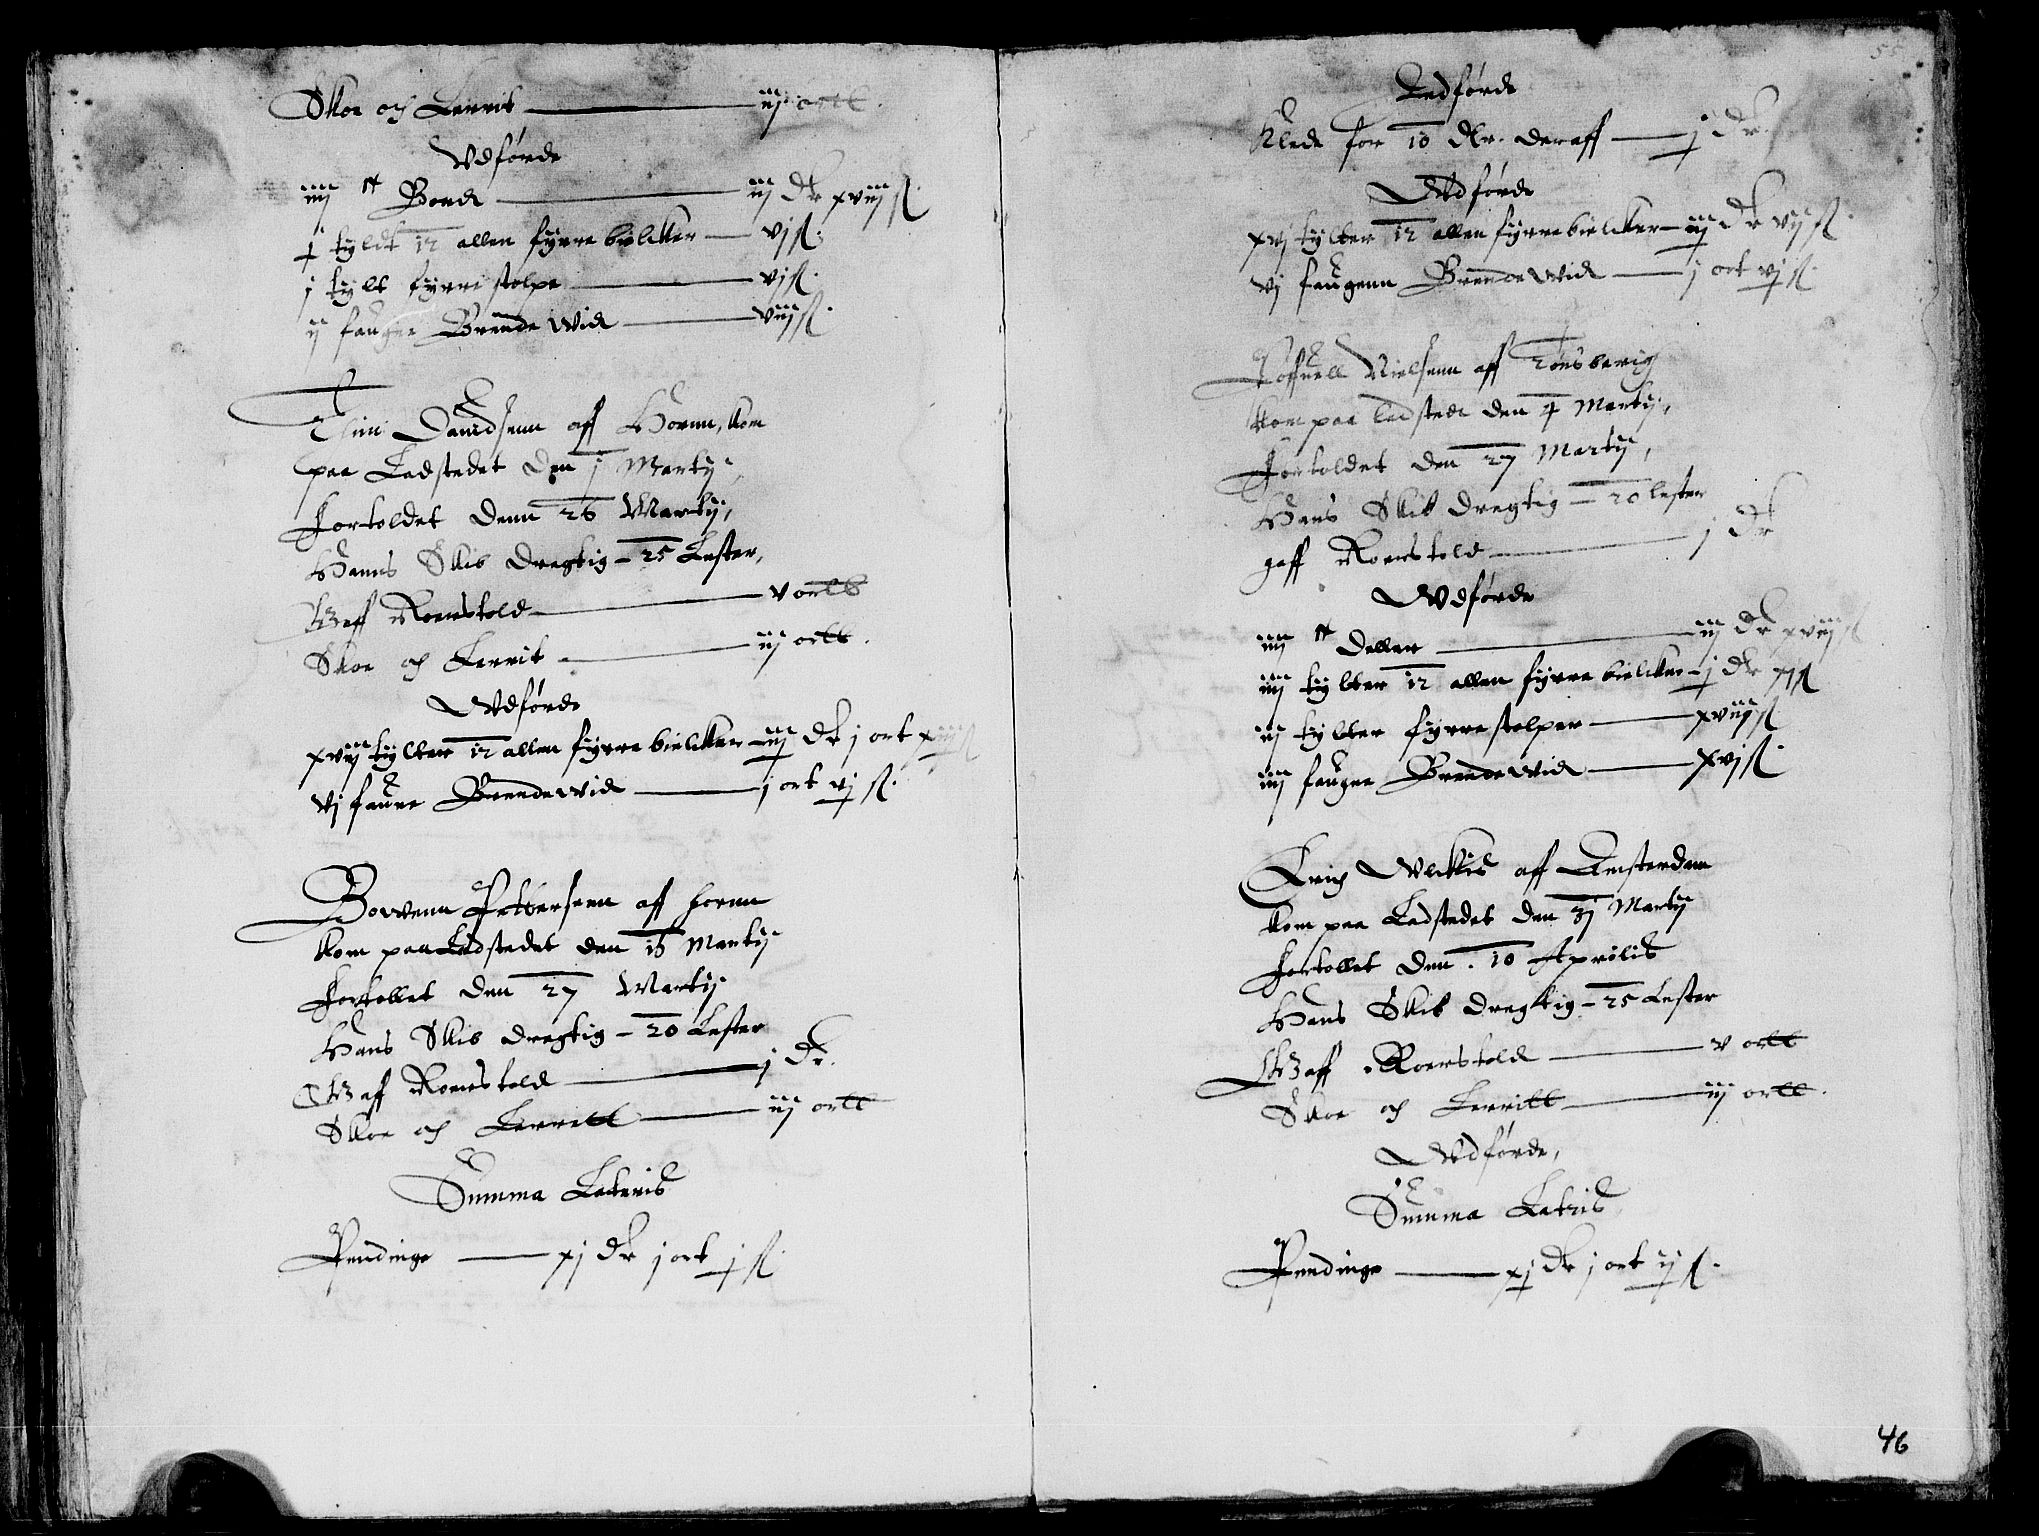 Skoe och Lerrit — iij ortt.
Wdførde
iiij ct Bordt — iij dr xviij ß
j tyldt 12 allen fyrre bielcker — vj ß.
j tylt fyrre stolpe — vj ß.
ij faugne Brende wid — viij ß.
Thim Dauidsenn aff Hornn, kom
paa Ladstedet den j Martij,
Fortoldet denn 26 Martij,
Hanns Skib dregtig – 25 Lester,
Gaff Roerstold — v ortt
Skoe och Lerrit — iij ortt.
Wdførde
xviij tylter 12 allen fyrre bielcker – iij dr j ort xiij ß
vj faune Brende wid — j ort vj ß.
Bowenn Pettersenn aff Hornn
kom paa Ladstedet den 15 Martij
Fortollet den 27 Martij.
Hans Skib dregtig – 20 Lester
Gaff Roerstold — j dr.
Skoe och Lerritt — iij ortt
Summa Lateris
Pendinge — xj dr j ort j ß.
55
Indførde
Klede for 10 dlr. deraff — j dr.
Wdførde
xvj tylter 12 allen fyrre bielcker – iij dr vij ß.
vj faugenn Brende wid — j ort vj ß.
Nielsenn aff Tønsberig
kom paa ladsted den 4 Martij,
Fortoldet den 27 Martij,
Hans Skib dregtig – 20 lester
gaff Roerstold — j dr
Wdførde
iiij ct Deller — iij dr xviij ß
iiij tylter 12 allen fyrre bielcker – j dr ß
iij tylter fyrre stolper — xviij ß.
iiij faugne Brende wid — xvj ß.
Erich aff Amsterdam
kom paa Ladstedet den 31 Martij
Fortollet den. 10 Aprilis
Hans Skib dregtig – 25 Lester
Gaff Roerstold — v ortt
Skoe och Lerritt — iij ortt.
Wdførde,
Summa Latris
Pendinge — xj dr j ort ij ß.
46